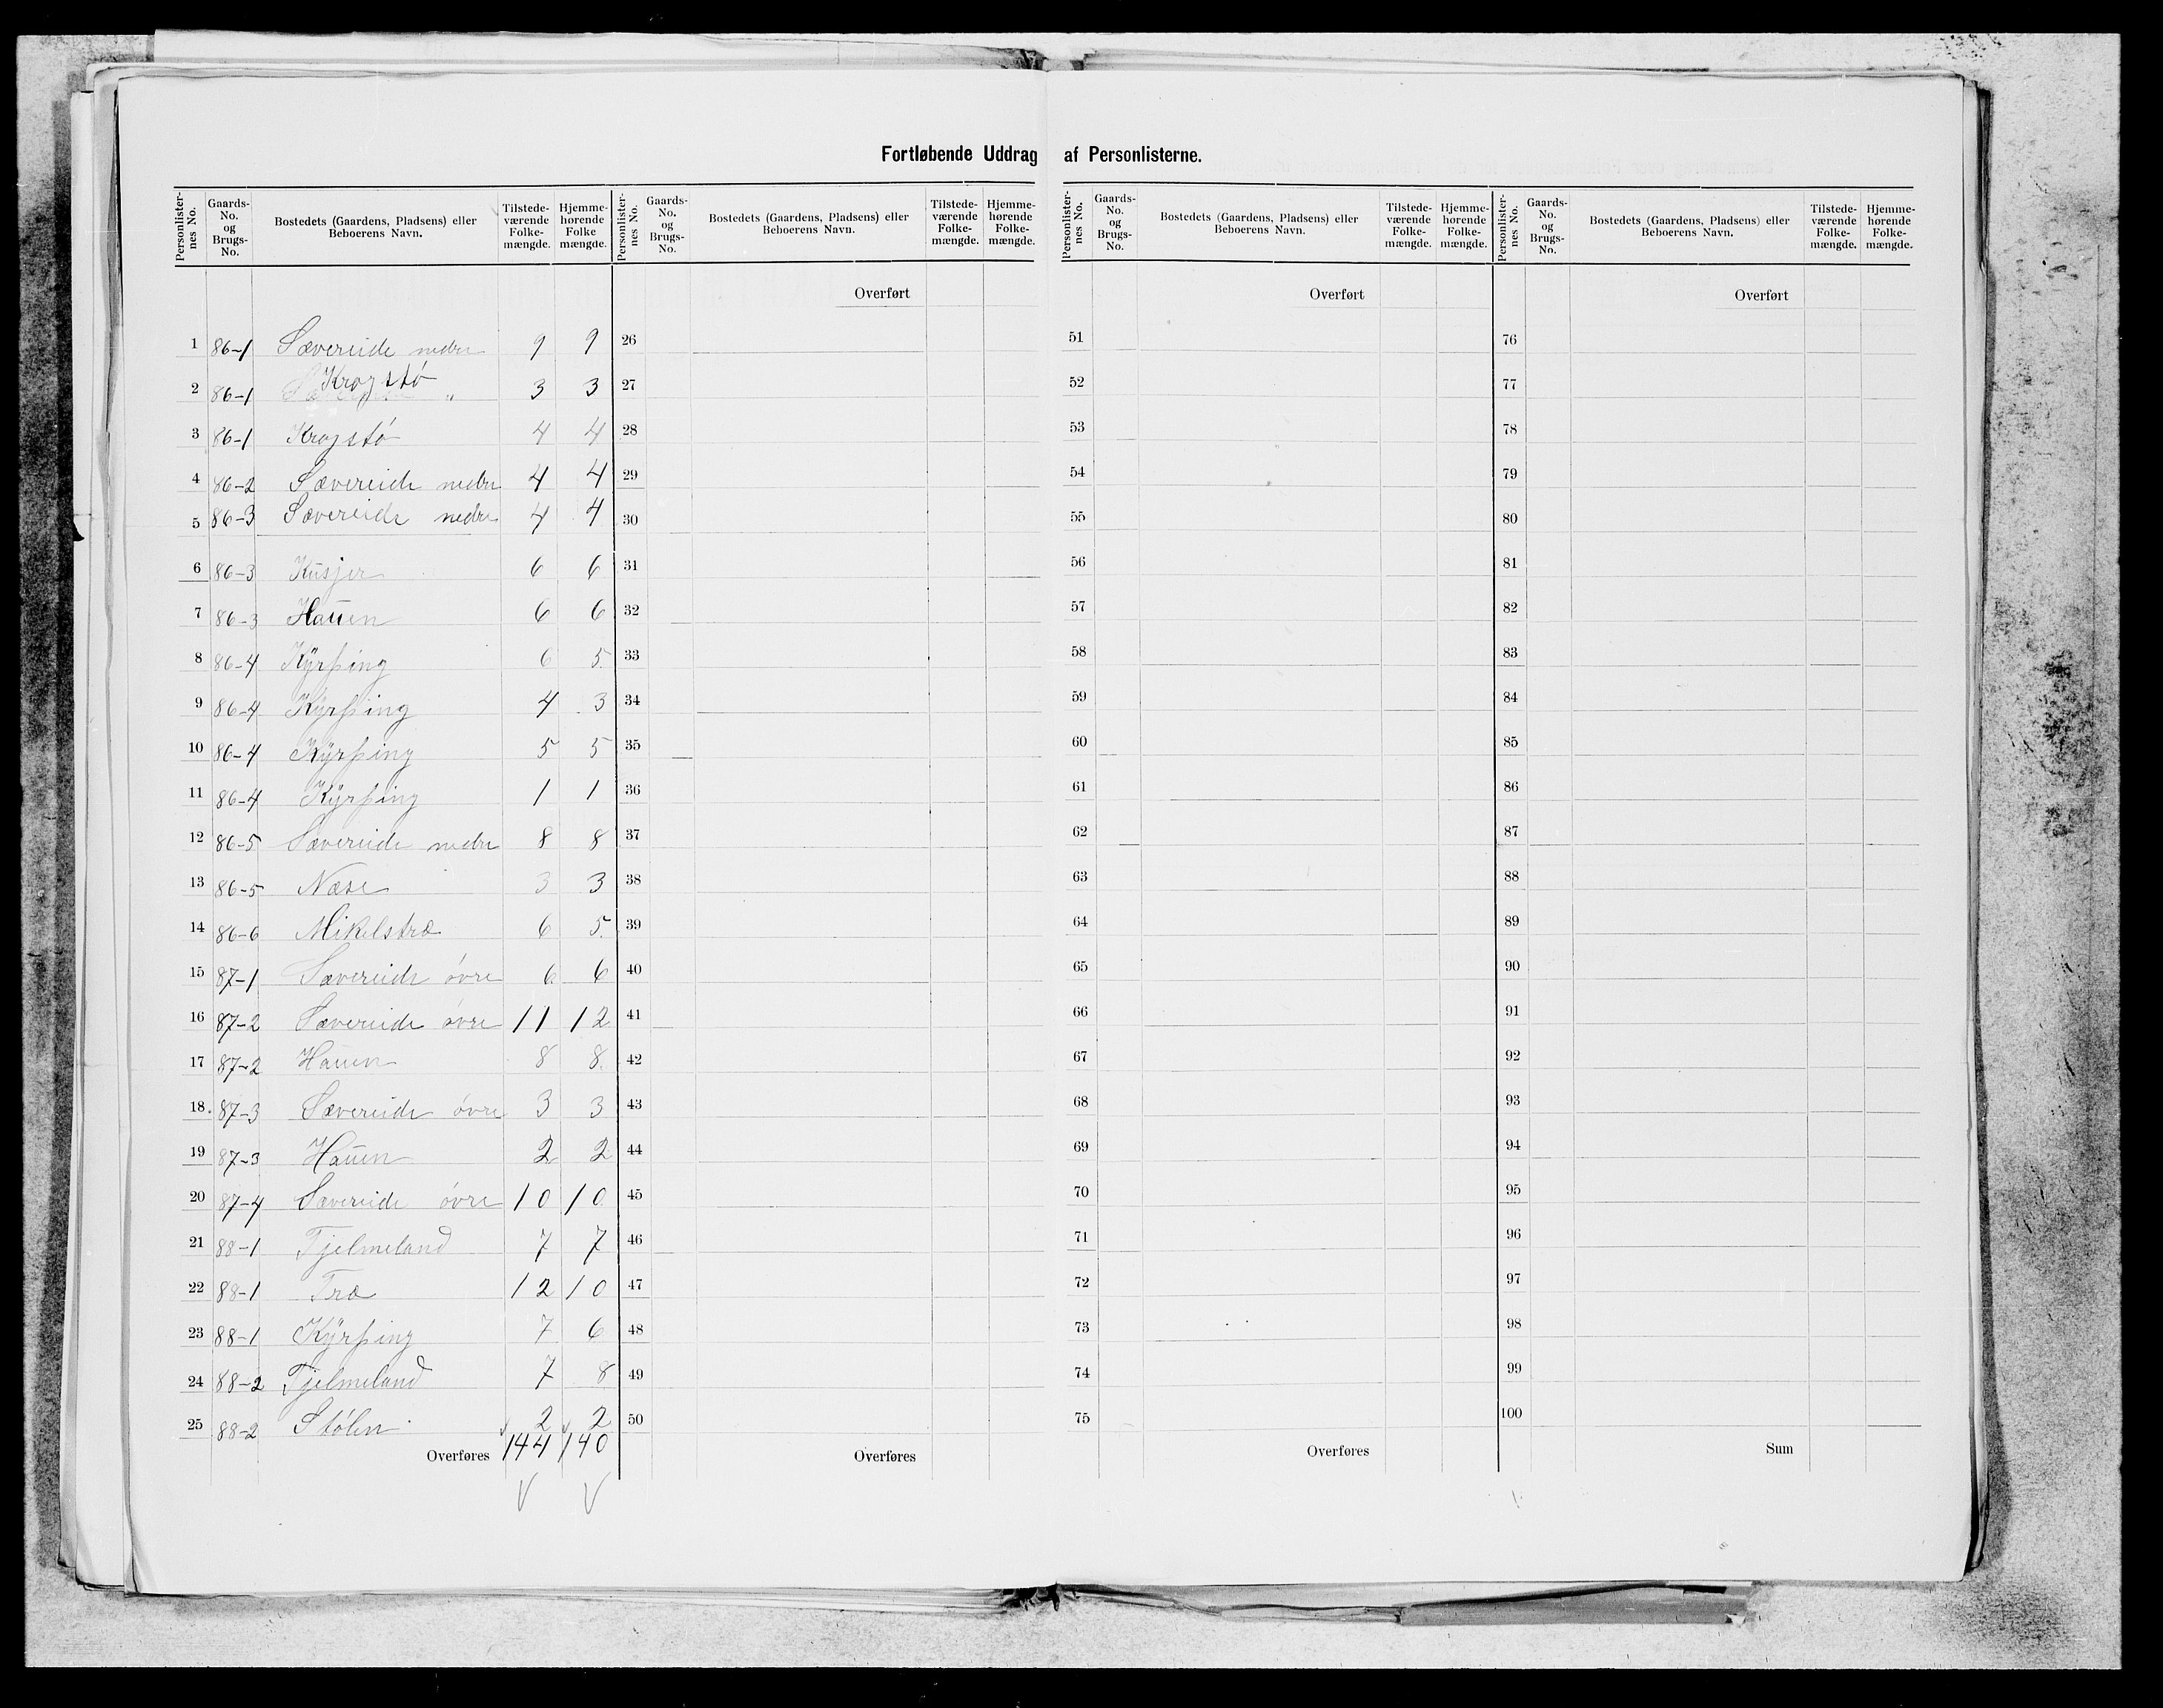 Fortløbende Uddrag af Personlisterne.
Personlister-nes No. Gaards-No. og Brugs-No. Bostedets (Gaardens, Pladsens) eller Beboerens Navn. Tilstede-værende Folke-mængde. Hjemme-hørende Folke mængde. Personlister-nes No. Gaards-No. og Brugs-No. Bostedets (Gaardens, Pladsens) eller Beboerens Navn. Tilstede-værende Folke-mængde. Hjemme-hørende Folke-mængde. Personlister-nes No. Gaards-No. og Brugs-No. Bostedets (Gaardens, Pladsens) eller Beboerens Navn. Tilstede-værende Folke-mængde. Hjemme-hørende Folke-mængde. Personlister-nes No. Gaards-No. og Brugs-No. Bostedets (Gaardens, Pladsens) eller Beboerens Navn. Tilstede-værende Folke-mængde. Hjemme-hørende Folke-mængde.
Overført Overført Overført
1 86-1 Sævereide nedre 9 9 26 51 76
2 86-1 Krogstø " 3 3 27 52 77
3 86-1 Krogstø 4 4 28 53 78
4 86-2 Sævereide nedre 4 4 29 54 79
5 86-3 Sævereide nedre 4 4 30 55 80
6 86-3 Kusjer 6 6 31 56 81
7 86-3 Hauen 6 6 32 57 82
8 86-4 Kyrping 6 5 33 58 83
9 86-4 Kyrping 4 3 34 59 84
10 86-4 Kyrping 5 5 35 60 85
11 86-4 Kyrping 1 1 36 61 86
12 86-5 Sævereide nedre 8 8 37 62 87
13 86-5 Næse 3 3 38 63 88
14 86-6 Mikelstræ 6 5 39 64 89
15 87-1 Sævereide øvre 6 6 40 65 90
16 87-2 Sævereide øvre 11 12 41 66 91
17 87-2 Hauen 8 8 42 67 92
18 87-3 Sævereide øvre 3 3 43 68 93
19 87-3 Hauen 2 2 44 69 94
20 87-4 Sævereide øvre 10 10 45 70 95
21 88-1 Tjelmeland 7 7 46 71 96
22 88-1 Træ 12 10 47 72 97
23 88-1 Kyrping 7 6 48 73 98
24 88-2 Tjelmeland 7 8 49 74 99
25 88-2 Stølen 2 2 50 75 100
Overføres 144 140 Overføres Overføres Sum